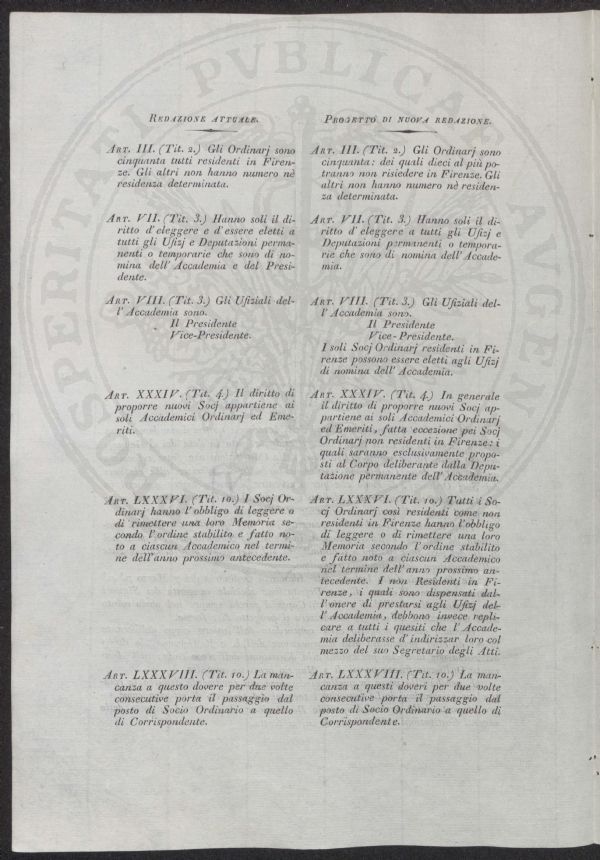 PROSPERITATI PVBLICAE AVGENDAE
REDAZIONE ATTUALE.
ART. III. (Tit. 2.) Gli Ordinarj sono
cinquanta tutti residenti in Firen-
ze. Gli altri non hanno numero nè
residenza determinata.
ART. VII. (Tit. 3.) Hanno soli il di-
ritto d'eleggere e d'essere eletti a
tutti gli Ufizj e Deputazioni perma-
nenti o temporarie che sono di no-
mina dell'Accademia e del Presi-
dente.
ART. VIII. (Tit. 3.) Gli Ufiziali del-
l'Accademia sono.
Il Presidente
Vice-Presidente.
ART. XXXIV. (Tit. 4.) Il diritto di
proporre nuovi Socj appartiene ai
soli Accademici Ordinarj ed Eme-
riti.
ART. LXXXVI. (Tit. 10.) I Socj Or-
dinarj hanno l'obbligo di leggere o
di rimettere una loro Memoria se-
condo l'ordine stabilito e fatto no-
to a ciascun Accademico nel termi-
ne dell'anno prossimo antecedente.
ART. LXXXVIII. (Tit. 10.) La man-
canza a questo dovere per due volte
consecutive porta il passaggio dal
posto di Socio Ordinario a quello
di Corrispondente.
PROGETTO DI NUOVA REDAZIONE.
ART. III. (Tit. 2.) Gli Ordinarj sono
cinquanta: dei quali dieci al più po-
tranno non risiedere in Firenze. Gli
altri non hanno numero nè residen-
za determinata.
ART. VII. (Tit. 3.) Hanno soli il di-
ritto d'eleggere a tutti gli Ufizj e
Deputazioni permanenti o tempora-
rie che sono di nomina dell'Accade-
mia.
ART. VIII. (Tit. 3.) Gli Ufiziali del-
l'Accademia sono.
Il Presidente
Vice-Presidente.
I soli Socj Ordinarj residenti in Fi-
renze possono essere eletti agli Ufizj
di nomina dell'Accademia.
ART. XXXIV. (Tit. 4.) In generale
il diritto di proporre nuovi Socj ap-
partiene ai soli Accademici Ordinarj
ed Emeriti, fatta eccezione pei Socj
Ordinarj non residenti in Firenze: i
quali saranno esclusivamente propo-
sti al Corpo deliberante dalla Depu-
tazione permanente dell'Accademia.
ART. LXXXVI. (Tit. 10.) Tutti i So-
cj Ordinarj così residenti come non
residenti in Firenze hanno l'obbligo
di leggere o di rimettere una loro
Memoria secondo l'ordine stabilito
e fatto noto a ciascun Accademico
nel termine dell'anno prossimo an-
tecedente. I non Residenti in Fi-
renze, i quali sono dispensati dal-
l'onere di prestarsi agli Ufizj del-
l'Accademia, debbono invece repli-
care a tutti i quesiti che l'Accade-
mia deliberasse d'indirizzar loro col
mezzo del suo Segretario degli Atti.
ART. LXXXVIII. (Tit. 10.) La man-
canza a questi doveri per due volte
consecutive porta il passaggio dal
posto di Socio Ordinario a quello di
Corrispondente.